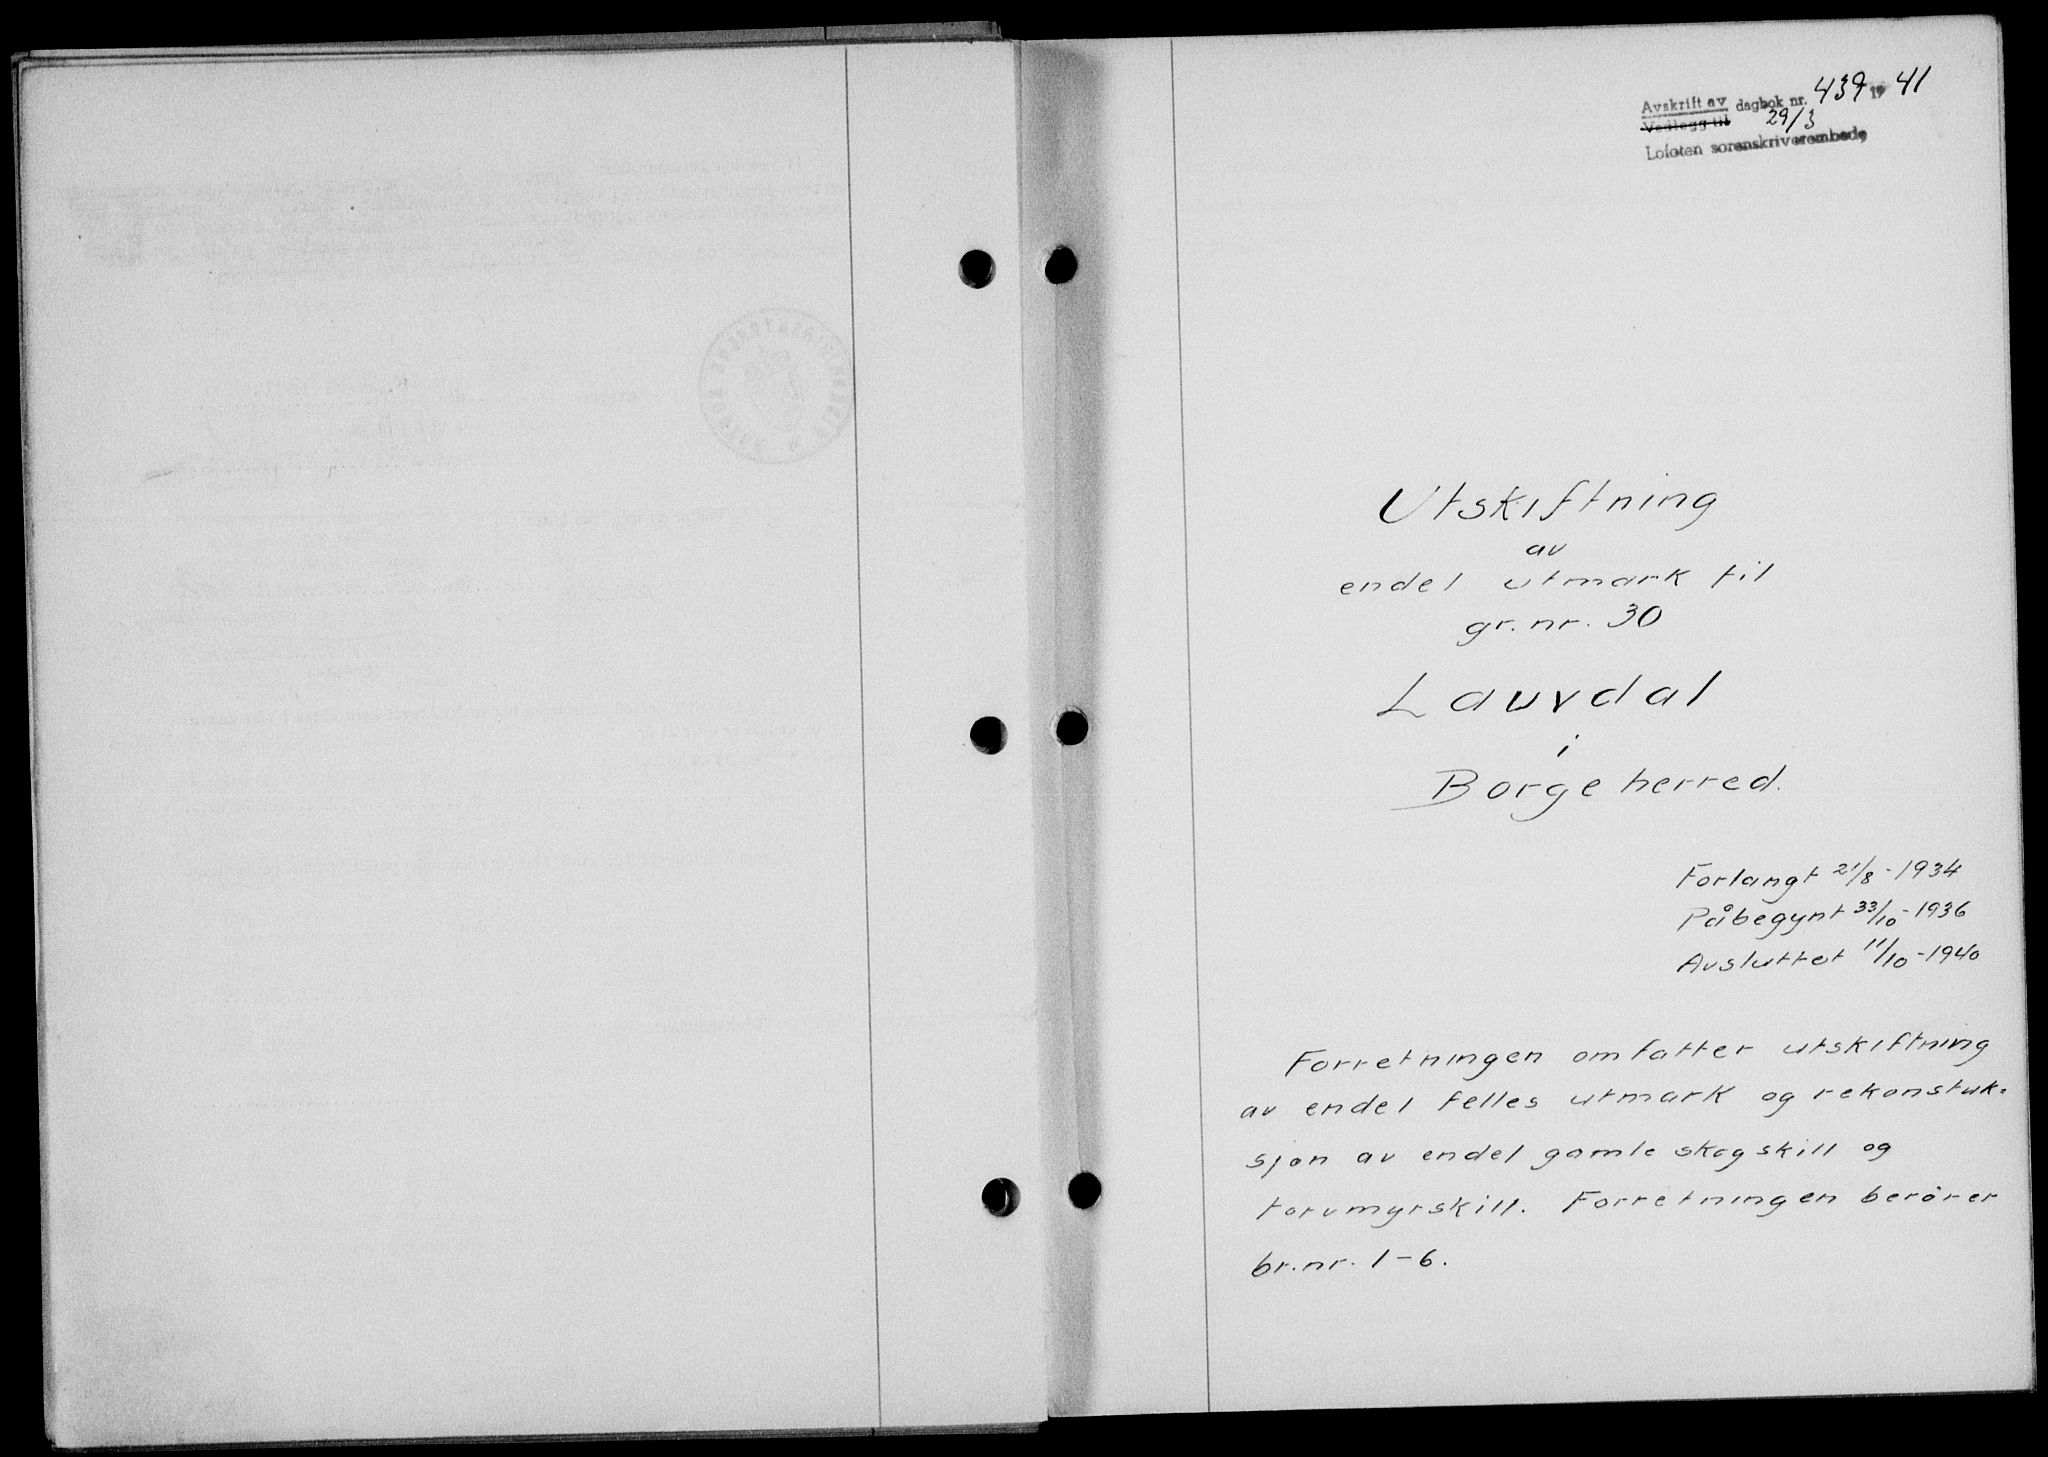 Avskrift av dagbok nr. 439 19 41
Vedlegg til 29/3
Lofoten sorenskriverembede
Utskiftning
av
endel utmark til
gr. nr. 30
Lauvdal
i
Borge herred.
Forlangt 21/8 - 1934
Påbegynt 33/10 - 1936
Avsluttet 11/10 - 1940
Forretningen omfatter utskiftning
av endel felles utmark og rekonstuk=
sjon av endel gamle skogskill og
torvmyrskill. Forretningen berører
br. nr. 1-6.